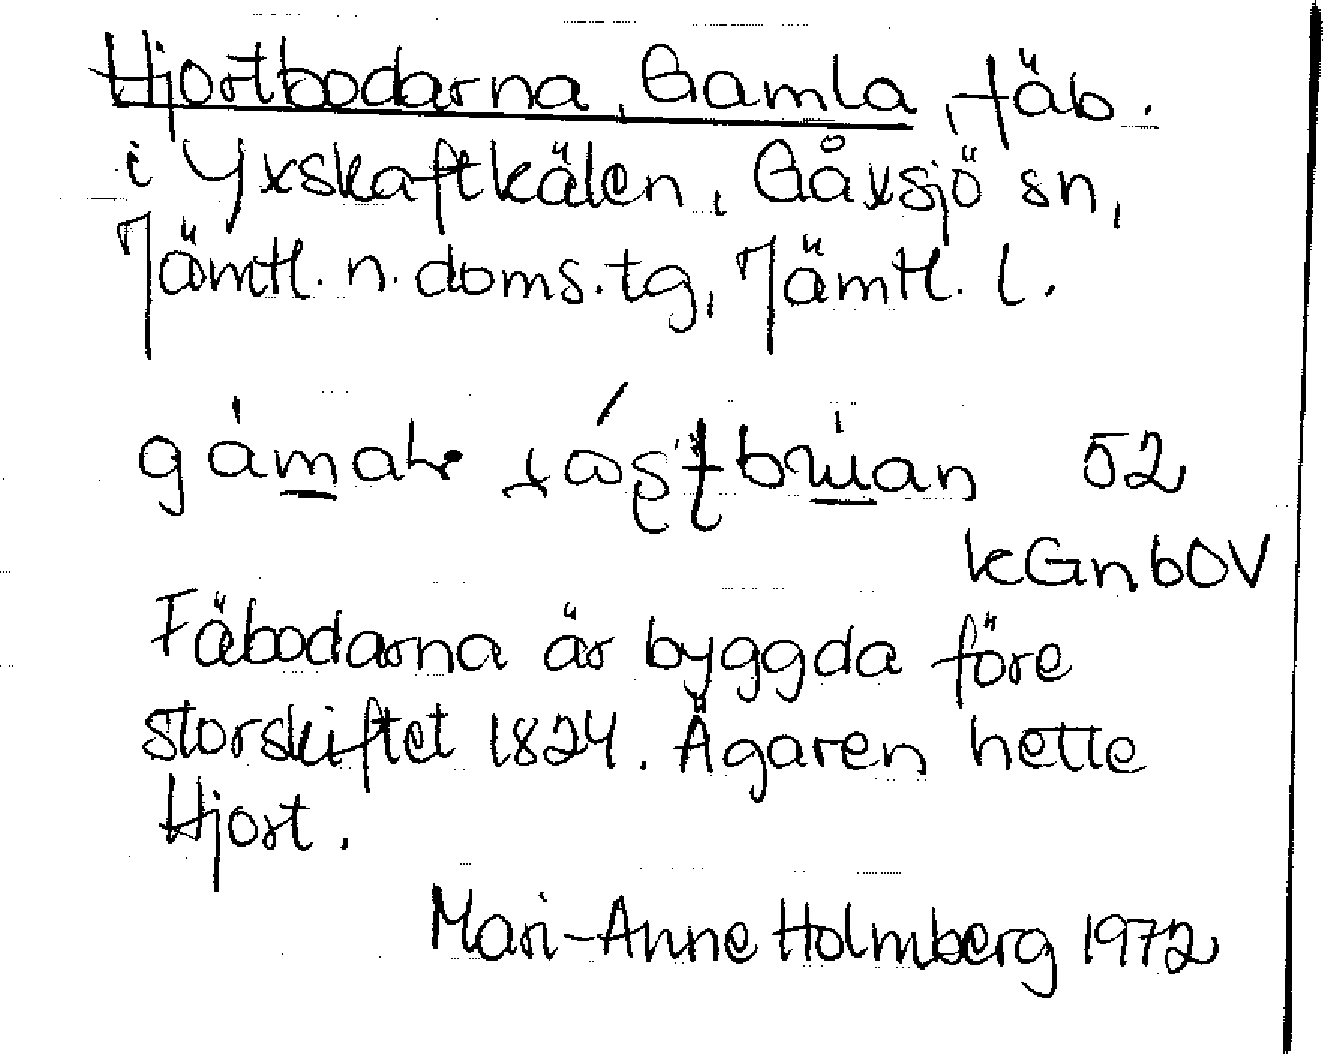 Hjortbodarna, Gamla, fäb.
i Yxskaftkälen, Gåxsjö sn,
Jämtl. n. doms. tg, Jämtl. l.
52
kGnbOV
Fäbodarna är byggda före
storskiftet 1824. Ägaren hette
Hjort.
Mari-Anne Holmberg 1972